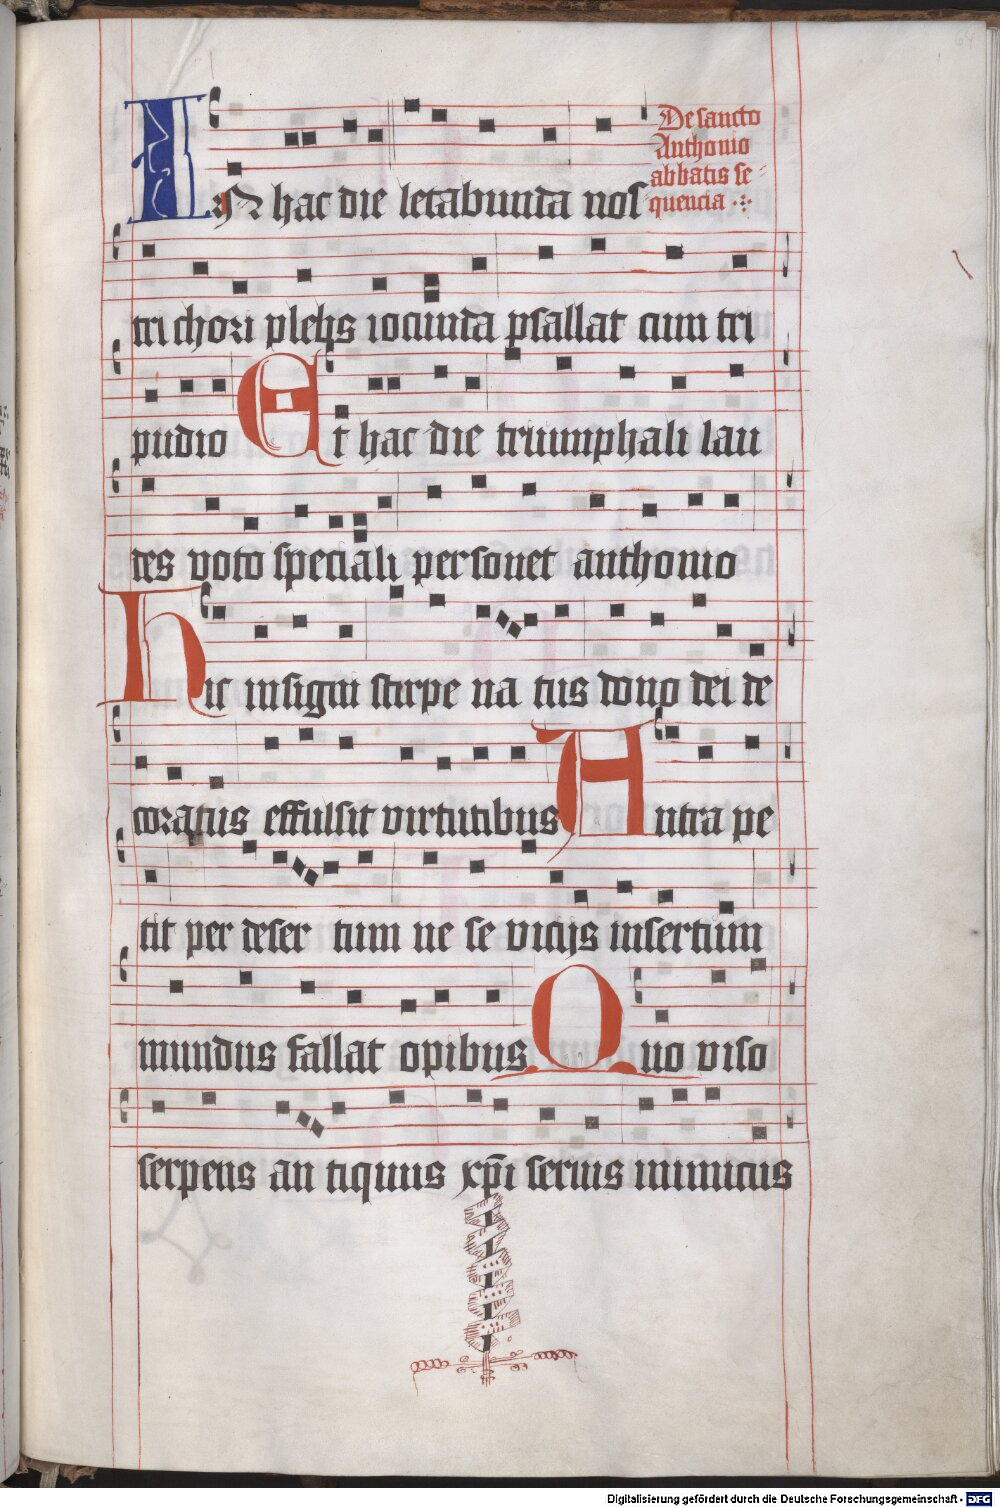 De sancto
Anthonio
abbatis se-
quencia
In hac die letabunda nos
tri chori plebs iocunda psallat cum tri
pudio Et hac die triumphali lau
des voto speciali personet anthonio
Hic insigni stirpe na tus dono dei de
coratus effulsit virtutibus Antra pe
tit per deser tum ne se vicijs insertum
mundus fallat opibus Quo viso
serpens an tiquus xpi seruis inimicus
64
Digitalisierung gefördert durch die Deutsche Forschungsgemeinschaft - DFG